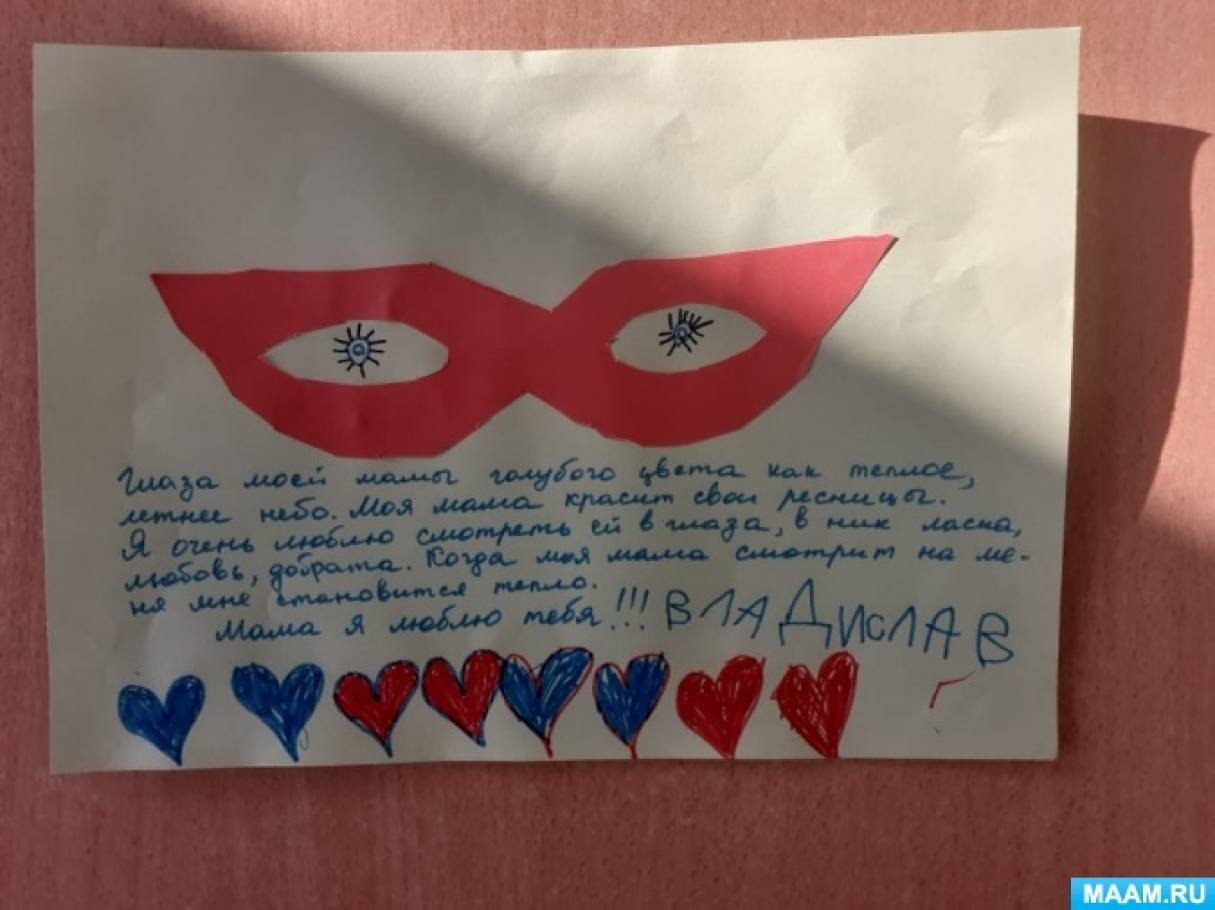 Глаза моей мамы голубого цвета как теплое,
летнее небо. Моя мама красит свои ресницы.
Я очень люблю смотреть ей в глаза, в них ласка,
любовь, добрата. Когда моя мама смотрит на ме-
ня мне становится тепло.
Мама я люблю тебя!!! ВЛАДИСЛАВ
MAAM.RU